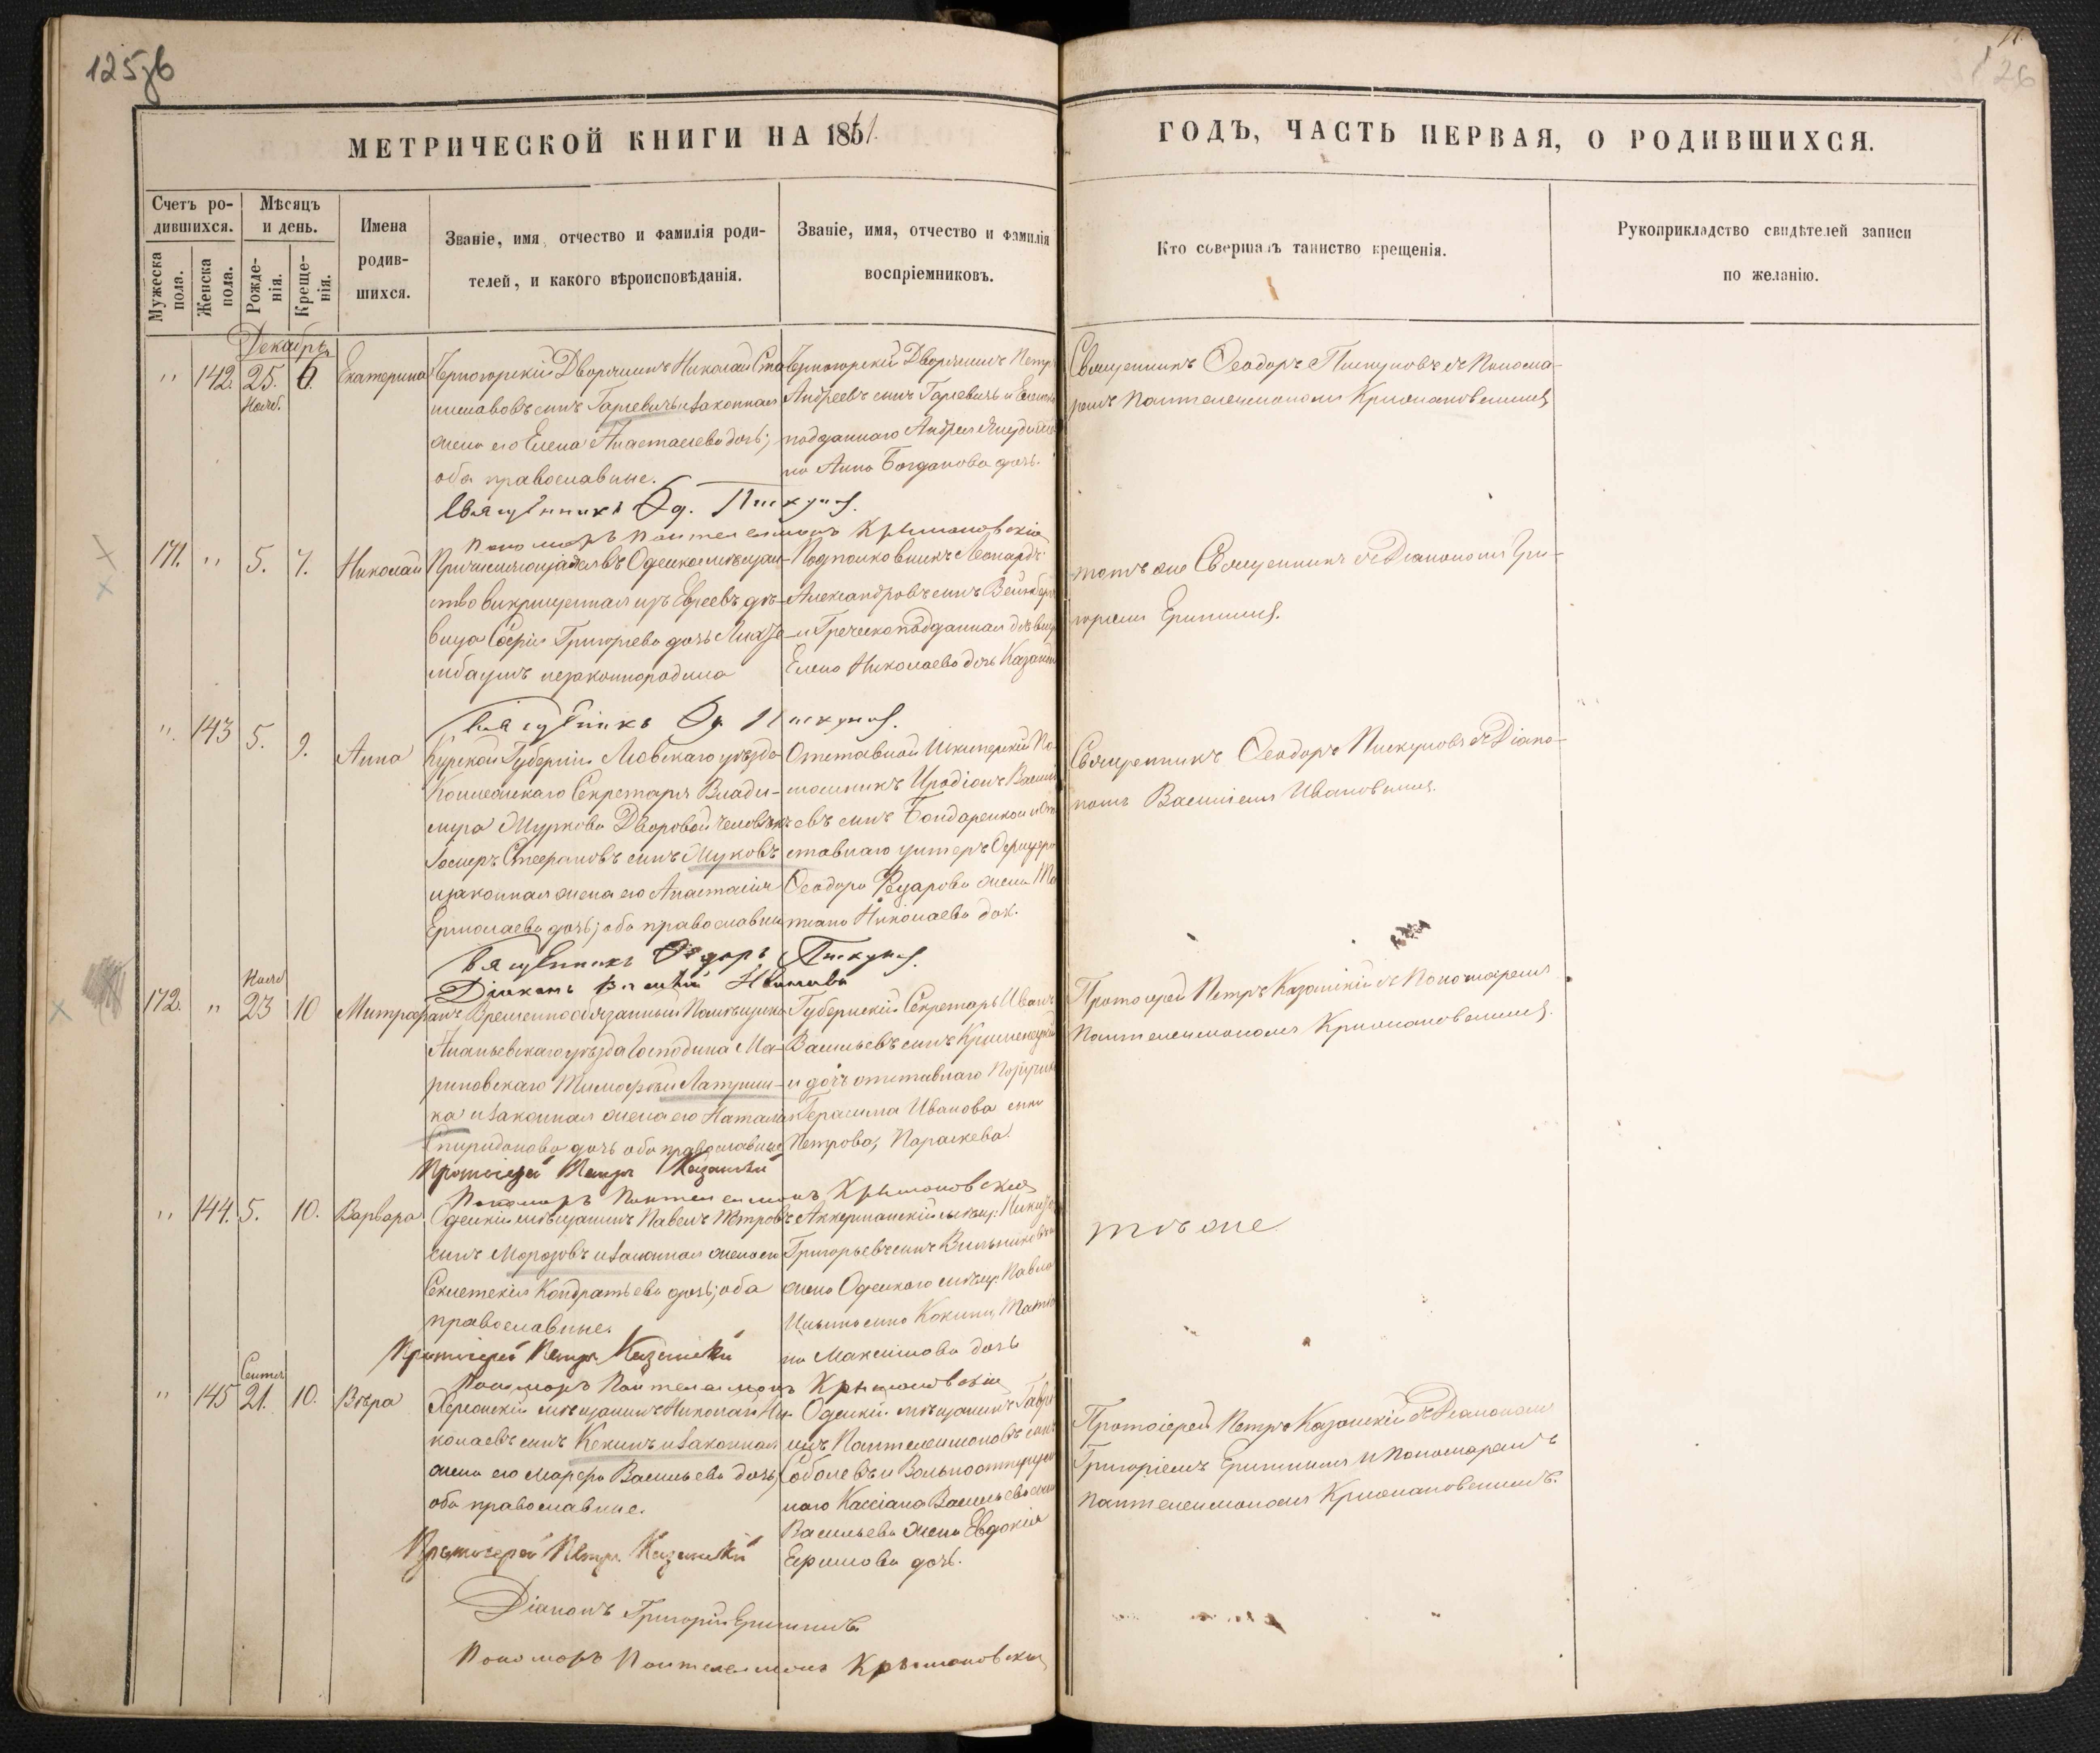 125зв
26
МЕТРИЧЕСКОЙ КНИГИ НА 1861.
ГОДЪ, ЧАСТЬ ПЕРВАЯ, О РОДИВШИХСЯ.
Счетъ родившихся.
Мужеска пола.
Женска пола.
Мѣсяцъ и день.
Рожденія.
Крещенія.
Имена родившихся.
Званіе, имя, отчество и фамилія родителей, и какого вѣроисповѣданія.
Званіе, имя, отчество и фамилія воспріемниковъ.
Кто совершалъ таинство крещенія.
Рукоприкладство свидѣтелей записи по желанію.
Декабрь
" 142. 25. Нояб. 6. Екатерина
Черногорскій Дворянинъ Николай Ста-
ниславовъ сынъ и законная
жена его Елена Анастасіева дочь;
оба православные.
Черногорскій Дворянинъ Петр
Андреевъ сынъ
подданнаго Андрея
на Анна Богданова дочь.
Священникъ Ѳеодоръ Пискуновъ съ Понома-
ремъ Пантелеимономъ Крыжановскимъ
Священникъ Ѳед. Пискунов.
Пономарь Пантелеимонъ Крыжановскій
171. " 5. 7. Николай
Причисляющаяся въ Одеское мѣщан-
ство викрещенная изъ Евреевъ дѣ-
вица Софія Григорьева дочь
незаконнородила
Подполковникъ Леонардъ
Александровъ сынъ Вейнбер
и Греческоподданная дѣвиц
Елена Николаева дочь
тотъ же Священникъ съ Діакономъ Гри-
горіемъ
Священникъ Ѳед. Пискунов.
". 143 5. 9. Анна
Курской Губерніи Льговскаго уѣзда
Коллежскаго Секретаря Влади-
мира Муркова Дворовой человѣкъ
Стефановъ сынъ Жуковъ
и законная жена его Анастасія
Ермолаева дочь; оба православны
Отставной Шкиперскій По-
мошникъ Иродіонъ Васил
евъ сынъ Бондаренко и От
ставнаго унтеръ Офицера
Ѳеодора жена
тіана Николаева доч.
Священникъ Ѳеодоръ Пискуновъ съ Діако-
номъ Василіемъ Ивановымъ.
Священникъ Ѳедоръ Пискунов.
Діаконъ Василій Иванова
172. " Нояб 23 10 Митрофанъ
Временнообязанный Помѣщика
Ананьевскаго уѣзда Господина Ма-
риновскаго Тимофѣй
ка и законная жена его Наталія
Спиридонова дочь оба православные
Губернскій Секретарь Иванъ
Васильевъ сынъ
и дочь отставнаго Поручика
Герасима Иванова сына
Петрова, Параскева.
Протоіерей Петръ Казанскій съ Пономаремъ
Пантелеимономъ Крыжановскимъ.
Протоіерей Петръ Казанскій
Пономарь Пантелеимонъ Крыжановскій
" 144. 5. 10. Варвара
Одескій мѣщанинъ Павелъ Петровъ
сынъ Морозовъ и законная жена его
Кондратьева дочь; оба
православные.
Аккерманскій мѣщ:
Григорьевъ сынъ
жена Одескаго мѣщ: Павла
Ильина сына
на Максимова дочь
тѣ же
Протоіерей Петръ Казанскій
Пономарь Пантелеимонъ Крыжановскій
" 145 Сентяб 21. 10. Вѣра
Херсонскій мѣщанинъ Николай Ни-
колаевъ сынъ Кекинъ и законная
жена его Марфа Васильева дочь,
оба православные.
Одескій мѣщанинъ Гаври
илъ Пантелеимоновъ сынъ
Соболевъ и Вольноотпущен
наго Кассіана Васильева сына
Васильева жена Евдокія
Ефимова дочь.
Протоіерей Петръ Казанскій съ Діакономъ
Григоріемъ и Пономаремъ
Пантелеимономъ Крыжановскимъ.
Протоіерей Петръ Казанскій
Діаконъ Григорій
Пономарь Пантелеимонъ Крыжановскій